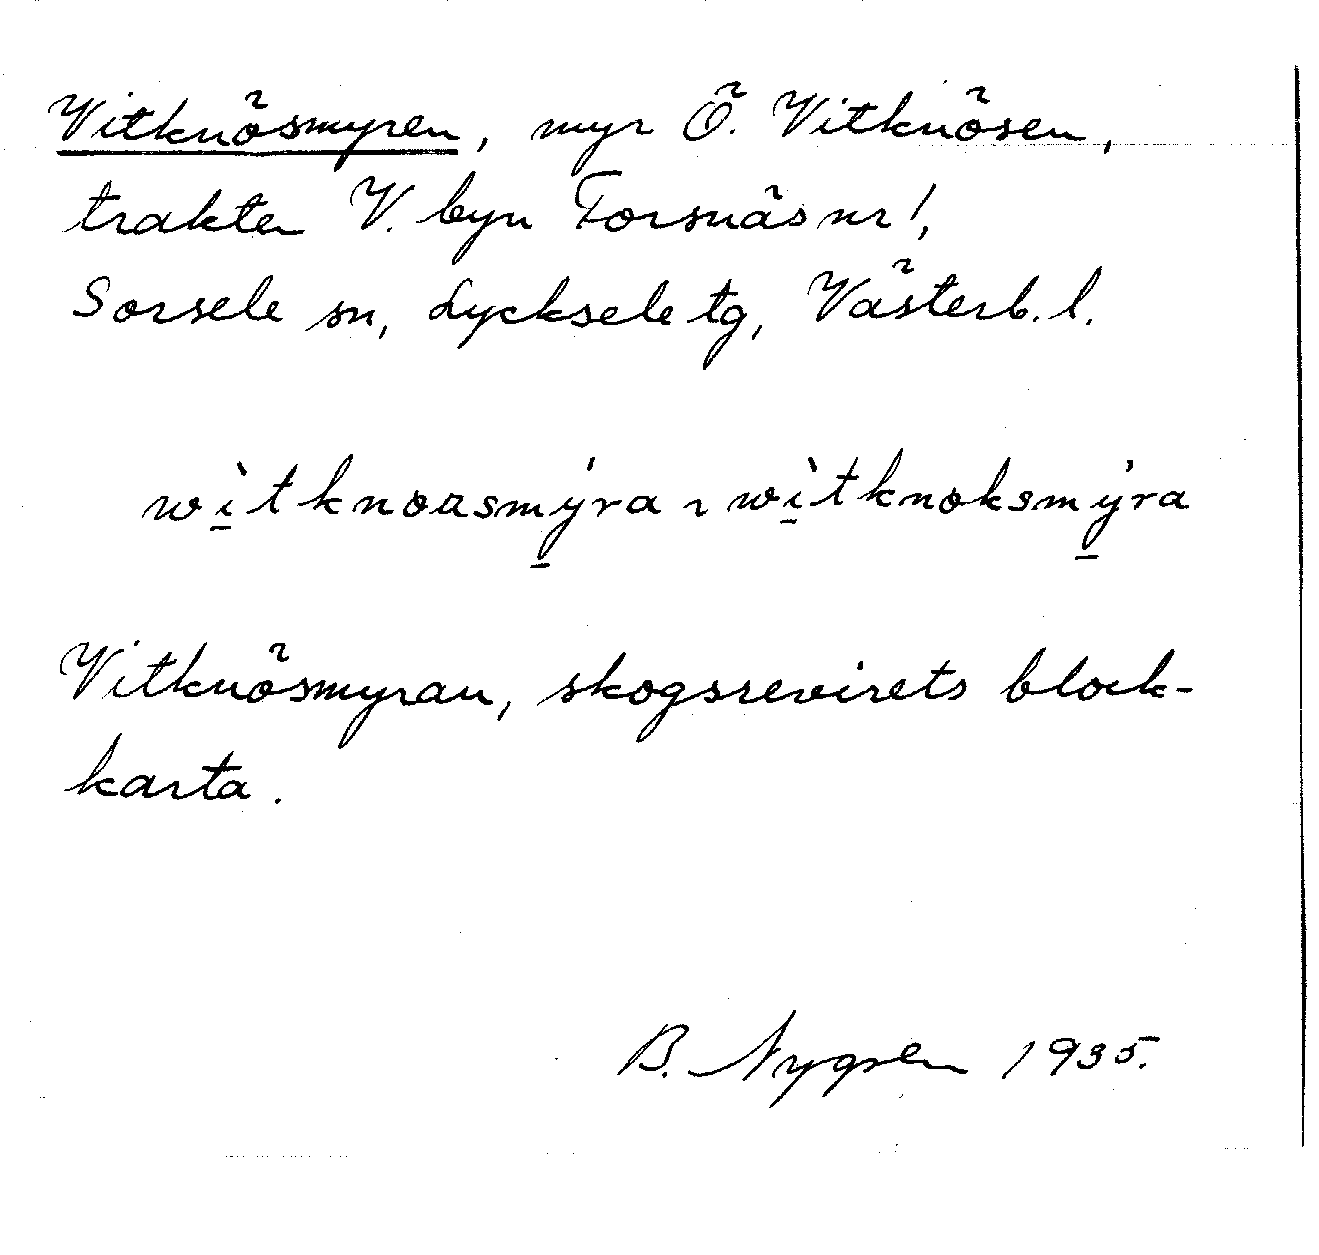 Vitknösmyren, myr Ö. Vitknösen,
trakten V. byn Forsnäs nr 1,
Sorsele sn, Lycksele tg, Västerb. l.
wì̲tknoasmý̲ra ~ wì̲tknoksmý̲ra
Vitknösmyran, skogsrevirets block-
karta.
B. Nygren 1935.